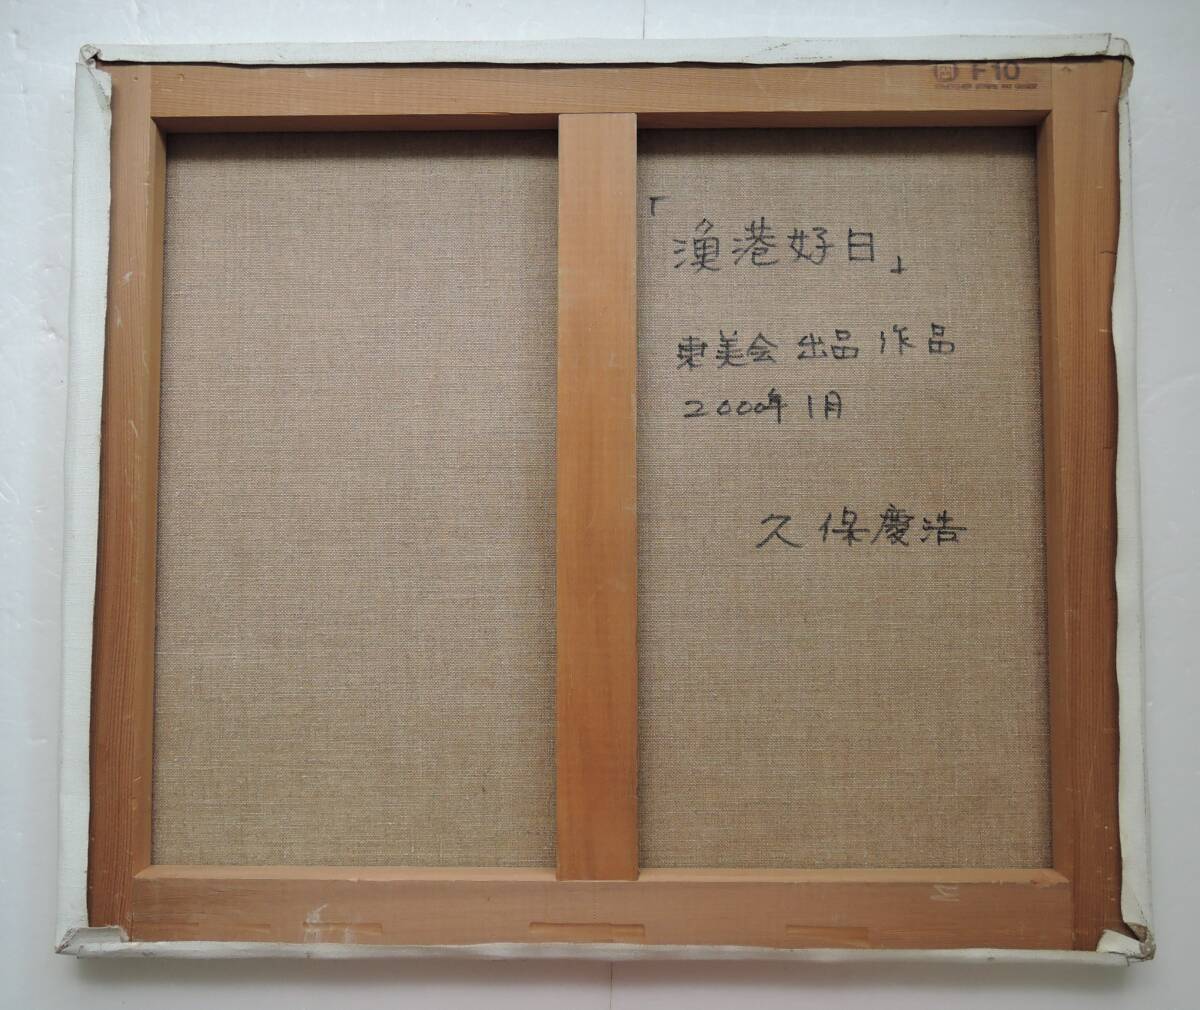 F10
「漁港好日」
東美会 出品 作品
2000年 1月
久保慶浩
M